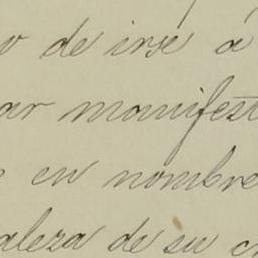 o de irse á
ar manifest
en nombre
aleza de su c